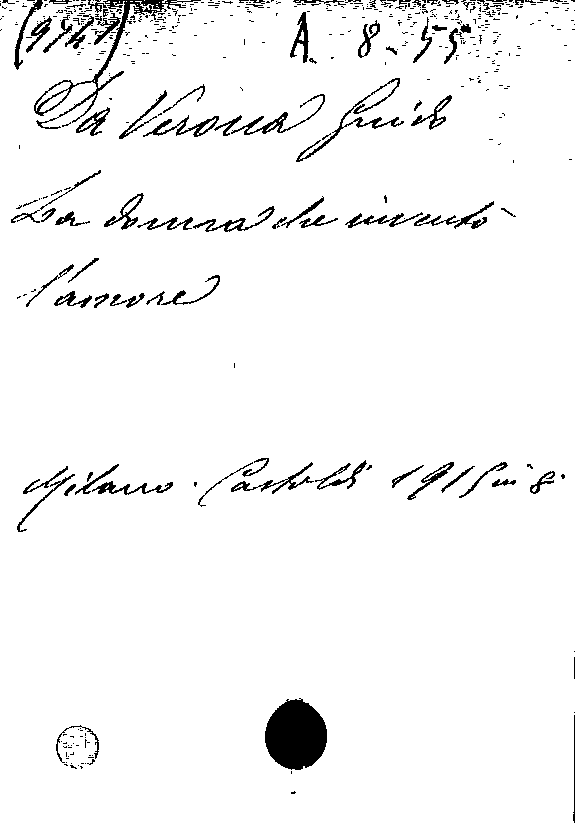 (9741) A. 8. 55
Da Verona Guido
La donna che inventò
l'amore
Milano. Castoldi 1915 in 8.